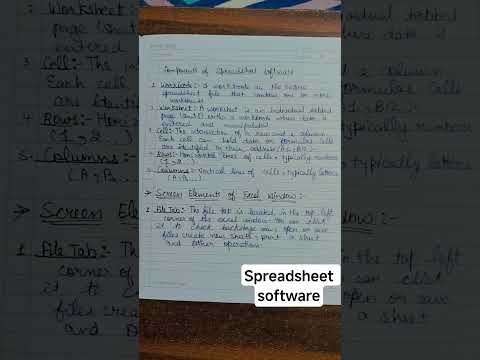 Components of Spreadsheet Software
1. Workbook: A workbook is the entire
spreadsheet file that contains one or more
worksheets
2. Worksheet: A worksheet is an individual tabbed
page (sheet) within a workbook where data is
entered and manipulated
3. Cell: The intersection of a row and a column
Each cell can hold data or formulas Cells
are identified by these address (A1, B2)
4. Rows:- Horizontal lines of cells, typically numbers
(1, 2 ...)
5. Columns:- Vertical line of cells, typically letters
(A, B...)
→ Screen Elements of Excel Window:-
1. File Tab:- The file tab is located in the top left
corner of the excel window. You can click
it to check backstage view open or save
files create new sheets, print a sheet
and other operations.
Spreadsheet
software